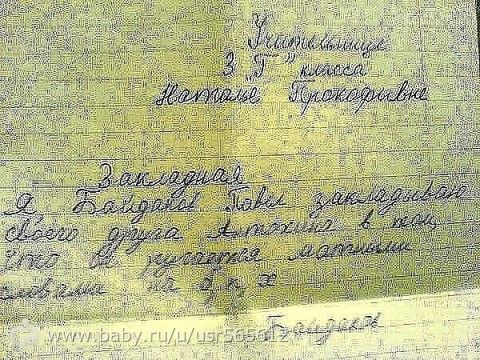 Учительнице
3 "Г" класса
Наталье Прокофьевне
Закладная
Я Байдаков Павел закладываю
своего друга Антохина в том
Что он ругается матными
словами на б, п, х
Байдаков
www.baby.ru/u/usr565612